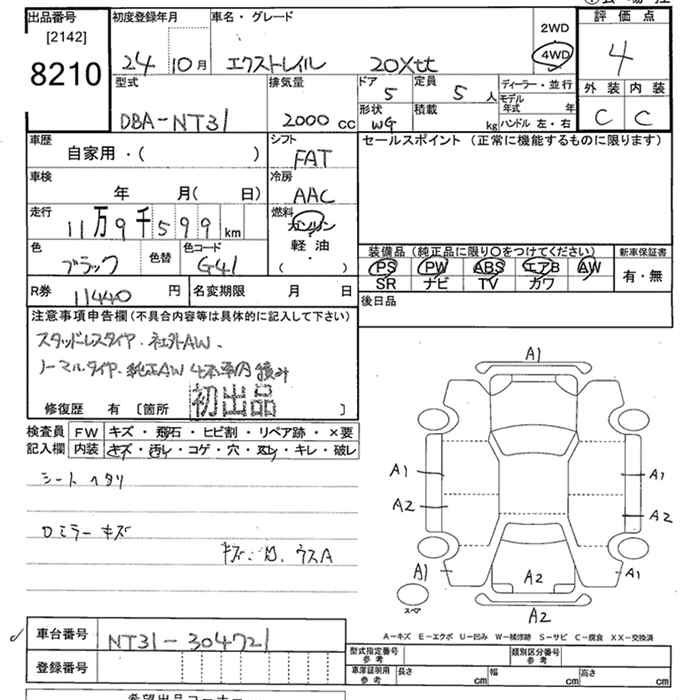 出品番号 初度登録年月 車名・グレード 2WD 4WD 評価点
[2142]
8210 24 10月 エクストレイル 20Xtt 4
型式 排気量 ドア 5 定員 5人 ディーラー・並行 外装 内装
DBA-NT31 2000cc 形状 WG 積載 kg モデル年式 年 ハンドル 左・右 C C
車歴 シフト セールスポイント（正常に機能するものに限ります）
自家用・( ) FAT
車検 冷房
年 月( 日) AAC
走行 燃料
11万9千599km ガソリン
軽油
( )
色 色替 色コード
ブラック G41
装備品（純正品に限り○をつけてください） 新車保証書
PS PW ABS エアB AW 有・無
SR ナビ TV カワ
R券 11440円 名変期限 月 日 後日品
注意事項申告欄（不具合内容等は具体的に記入して下さい）
スタッドレスタイヤ・社外AW.
ノーマルタイヤ・純正AW 4本車内積み
初出品
修復歴 有 [箇所 ]
検査員記入欄 FW キズ・飛石・ヒビ割・リペア跡・×要
内装 キズ・汚レ・コゲ・穴・スレ・キレ・破レ
シートヘタリ
Dミラーキズ
ウスA
A1
A1 A1
A2 A2
A1 A1
A2
スペア
A2
A－キズ E－エクボ U－凹み W－補修跡 S－サビ C－腐食 XX－交換済
車台番号 NT31-304721
登録番号
型式指定番号 参考 類別区分番号 参考
車庫証明用 参考 長さ cm 幅 cm 高さ cm
希望出品コーナー